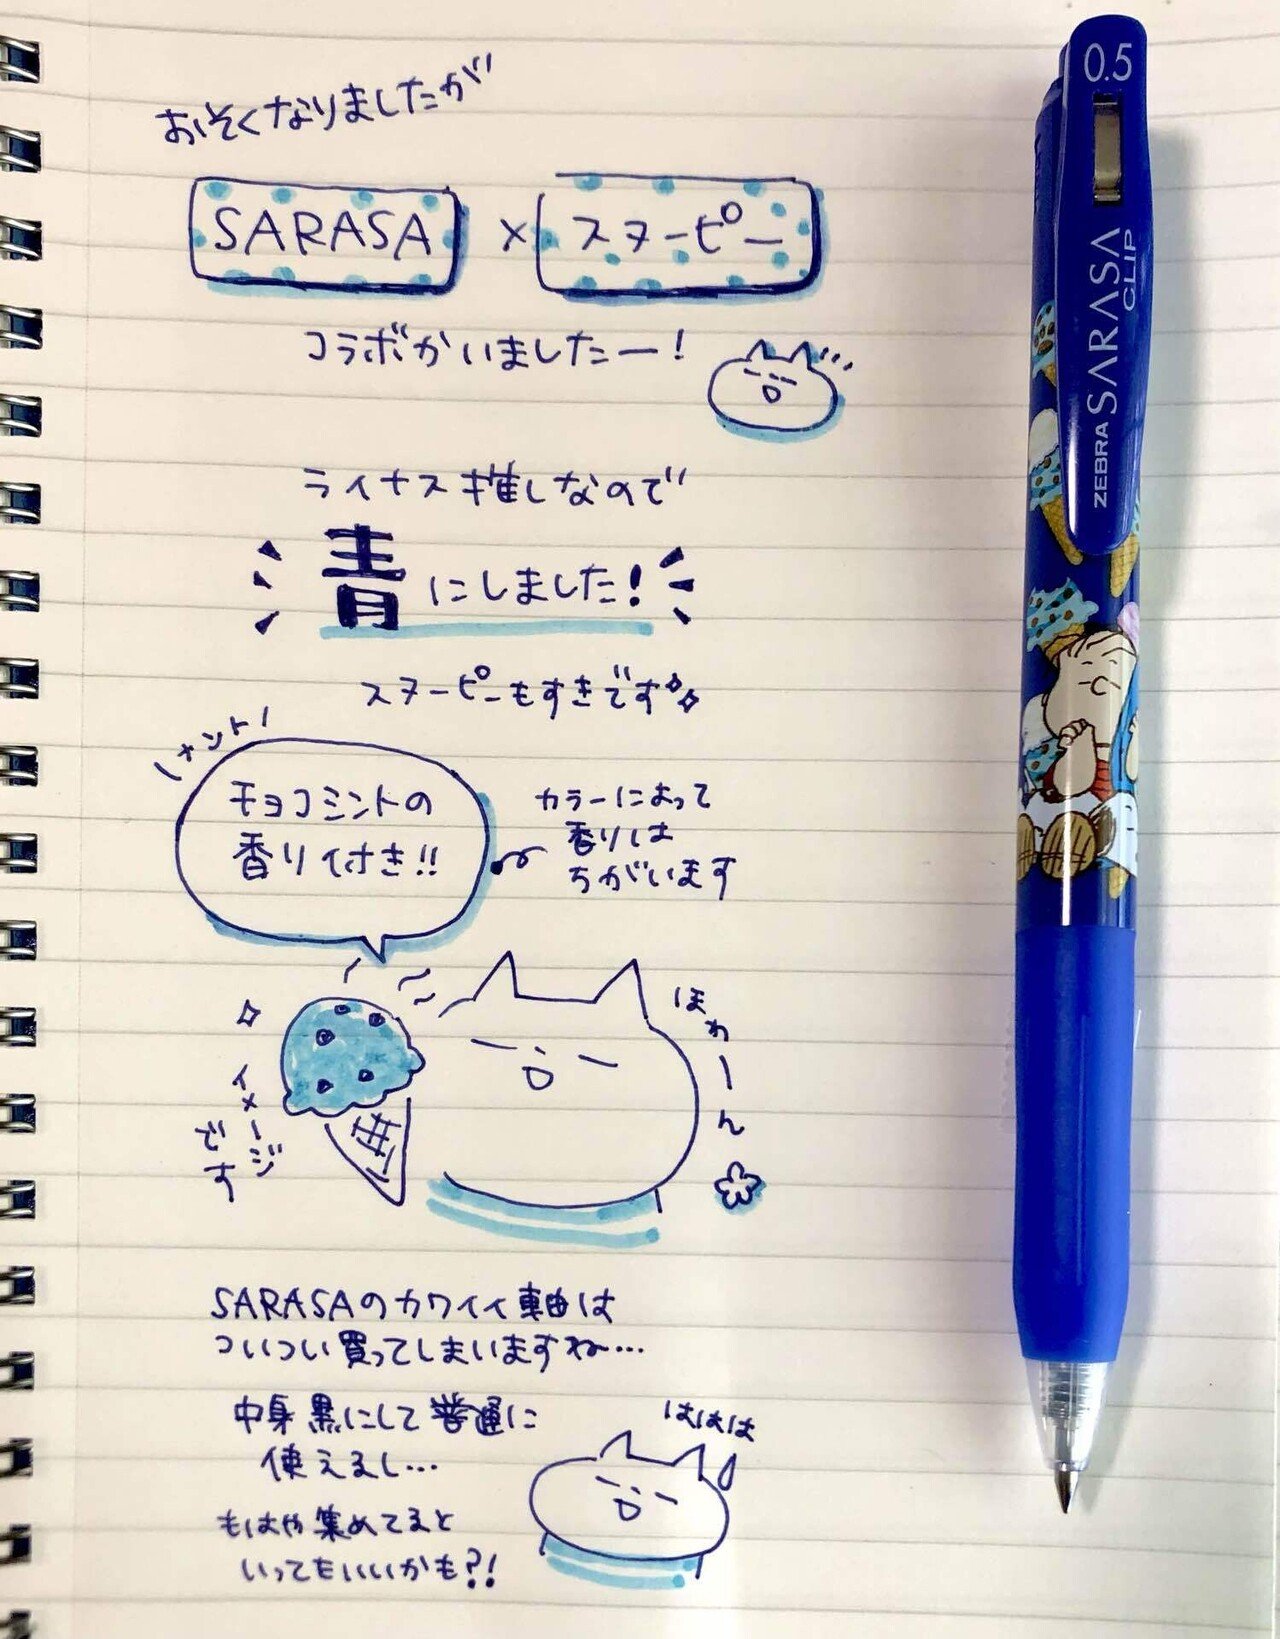 おそくなりましたが
SARASA × スヌーピー
コラボかいましたー!
ライナス推しなので
青にしました!
スヌーピーもすきです
メント!
チョコミントの
香り付き!!
カラーによって
香りは
ちがいます
ほわーん
イメージ
です
SARASAのカワイイ軸は
ついつい買ってしまいますね…
中身黒にして普通に
使えるし…
ははは
もはや集めてると
いってもいいかも?!
0.5
ZEBRA SARASA CLIP